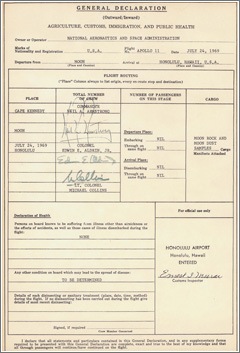 GENERAL DECLARATION
(Outward/Inward)
AGRICULTURE, CUSTOMS, IMMIGRATION, AND PUBLIC HEALTH
Owner or Operator NATIONAL AERONAUTICS AND SPACE ADMINISTRATION
Marks of Nationality and Registration U.S.A. Flight No. APOLLO 11 Date JULY 24, 1969
Departure from MOON Arrival at HONOLULU, HAWAII, U.S.A.
(Place and Country) (Place and Country)
FLIGHT ROUTING
("Place" Column always to list origin, every en-route stop and destination)
PLACE TOTAL NUMBER OF CREW NUMBER OF PASSENGERS ON THIS STAGE CARGO
CAPE KENNEDY COMMANDER NEIL A. ARMSTRONG
MOON
Departure Place:
Embarking NIL
Through on same flight NIL
MOON ROCK AND MOON DUST SAMPLES
Cargo Manifests Attached
JULY 24, 1969 HONOLULU
COLONEL EDWIN E. ALDRIN, JR.
Arrival Place:
Disembarking NIL
Through on same flight NIL
LT. COLONEL MICHAEL COLLINS
Declaration of Health
For official use only
Persons on board known to be suffering from illness other than airsickness or the effects of accidents, as well as those cases of illness disembarked during the flight:
NONE
HONOLULU AIRPORT
Honolulu, Hawaii
ENTERED
Customs Inspector
Any other condition on board which may lead to the spread of disease:
TO BE DETERMINED
Details of each disinsecting or sanitary treatment (place, date, time, method) during the flight. If no disinsecting has been carried out during the flight give details of most recent disinsecting:
Signed, if required
Crew Member Concerned
I declare that all statements and particulars contained in this General Declaration, and in any supplementary forms required to be presented with this General Declaration are complete, exact and true to the best of my knowledge and that all through passengers will continue/have continued on the flight.